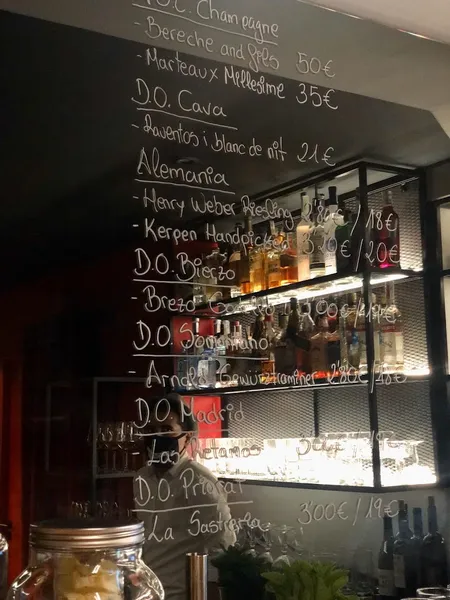 D.O.C. Champagne
- Bereche and fils 50€
- Marteaux Millesime 35€
D.O. Cava
- Raventos i blanc de nit 21€
Alemania
- Henry Weber Riesling 2'80€/18€
- Kerpen Handpicked /20€
D.O. Bierzo
- Brezo
D.O. Somontano
- Gewürztraminer 2'80€/18€
D.O. Madrid
- Las Retamas
D.O. Priorat
- La Sastresla 3'00€/19€